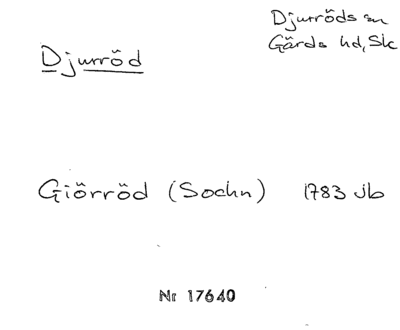 Djurröds sn
Gärds hd, Sk
Djurröd
Giörröd (Sochn) 1783 Jb
Nr 17640